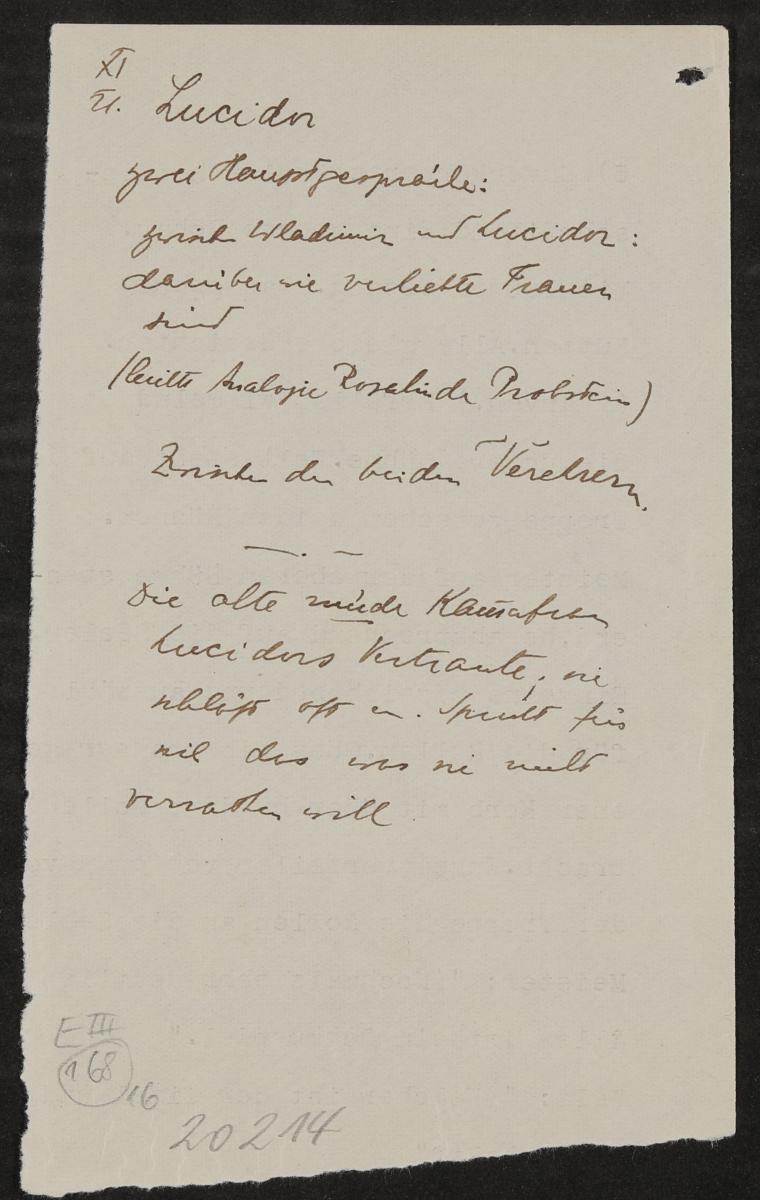 XI
21. Lucidor
zwei Hauptgespräche:
zwischen Wladimir und Lucidor:
darüber wie verliebte Frauen
sind
Analogie Rosalinde Probstein)
Zwischen den beiden Verehrern.
— . —
Die alte müde Kammerfrau
Lucidors Vertraute; sie
schläft oft ein. Spricht für
sich das was sie nicht
verrathen will
E III
168
16
20214